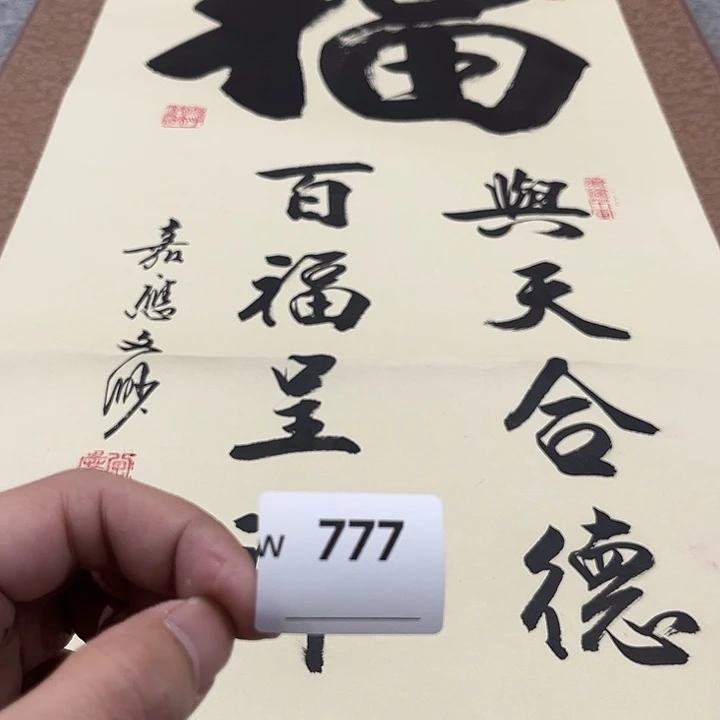 福
與天合德
百福呈
嘉應
W 777